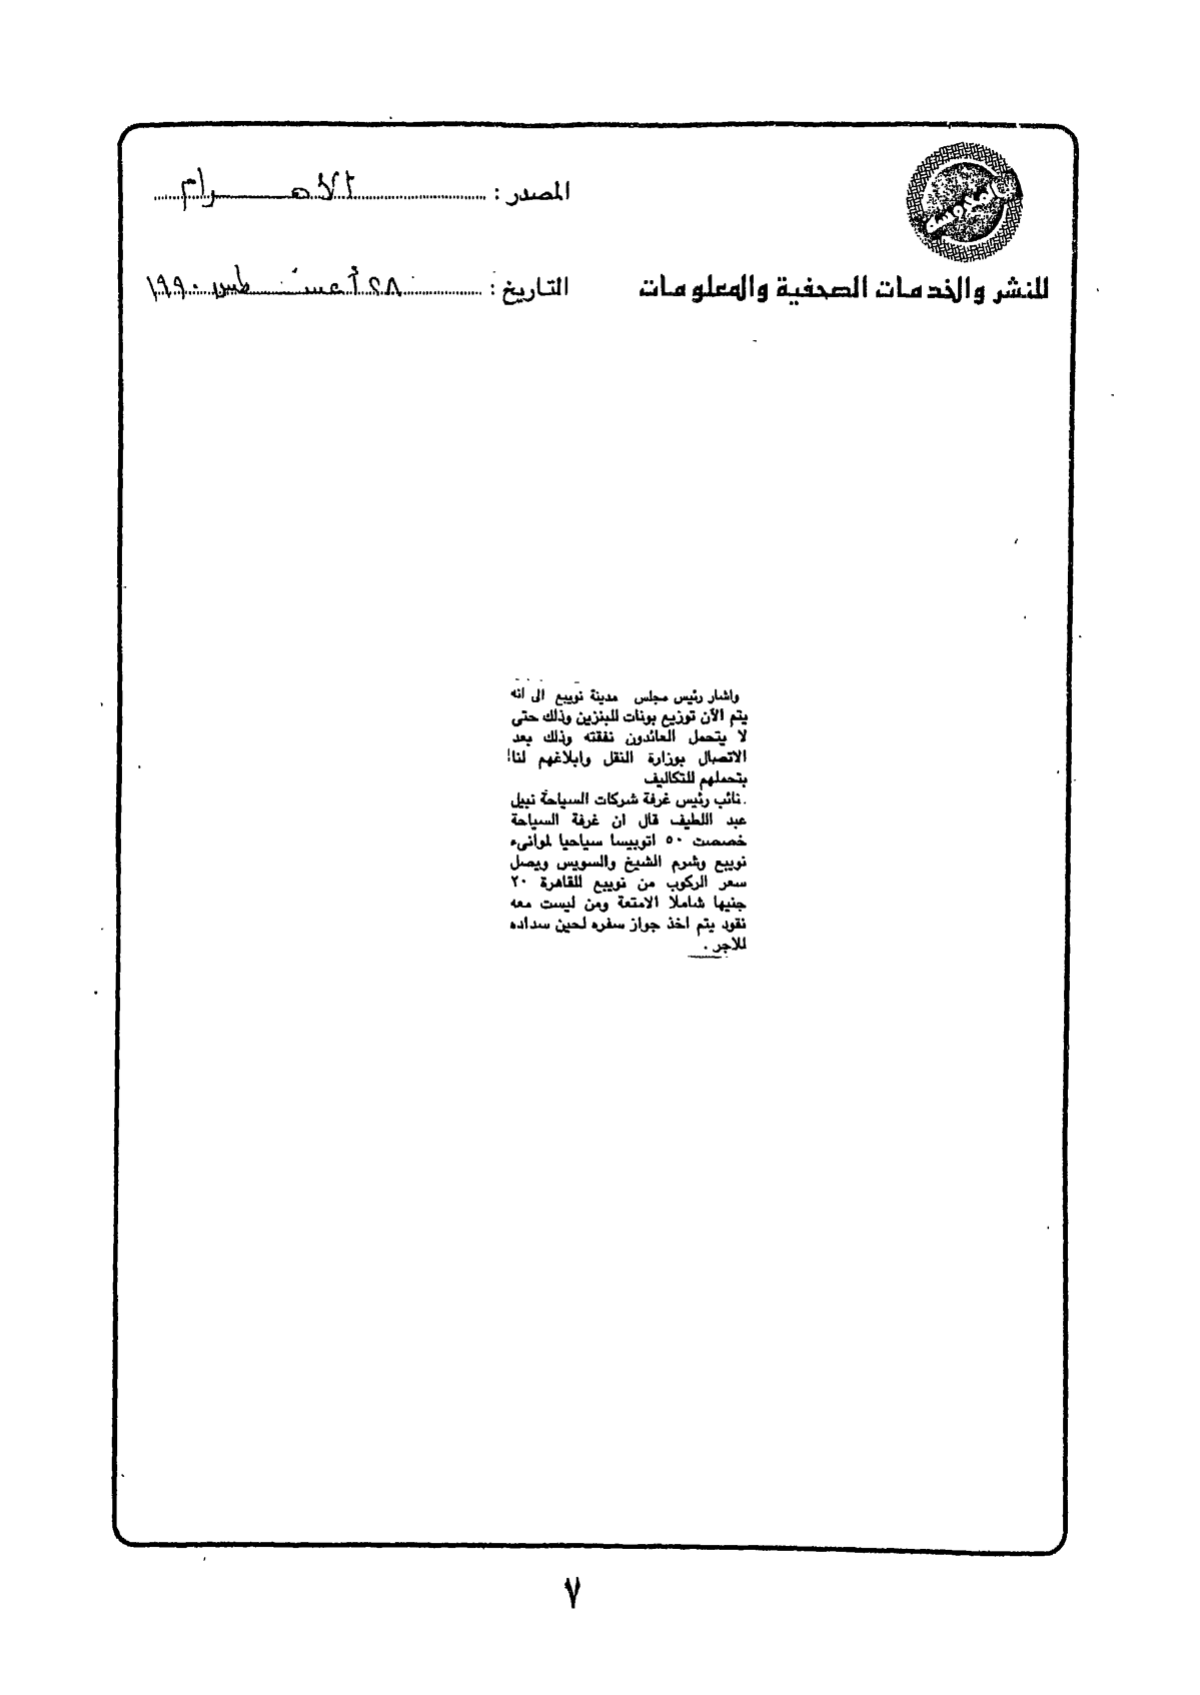 المحروسة
المصدر : الأهرام
للنشر والخدمات الصحفية والمعلومات
التاريخ : ٢٨ أغسطس ١٩٩٠
واشار رئيس مجلس مدينة نويبع الى انه
يتم الآن توزيع بونات للبنزين وذلك حتى
لا يتحمل العائدون نفقته وذلك بعد
الاتصال بوزارة النقل وابلاغهم لنا
بتحملهم للتكاليف
. نائب رئيس غرفة شركات السياحة نبيل
عبد اللطيف قال ان غرفة السياحة
خصصت ٥٠ اتوبيسا سياحيا لموانىء
نويبع وشرم الشيخ والسويس ويصل
سعر الركوب من نويبع للقاهرة ٢٠
جنيها شاملا الامتعة ومن ليست معه
نقود يتم اخذ جواز سفره لحين سداده
للاجر .
٧